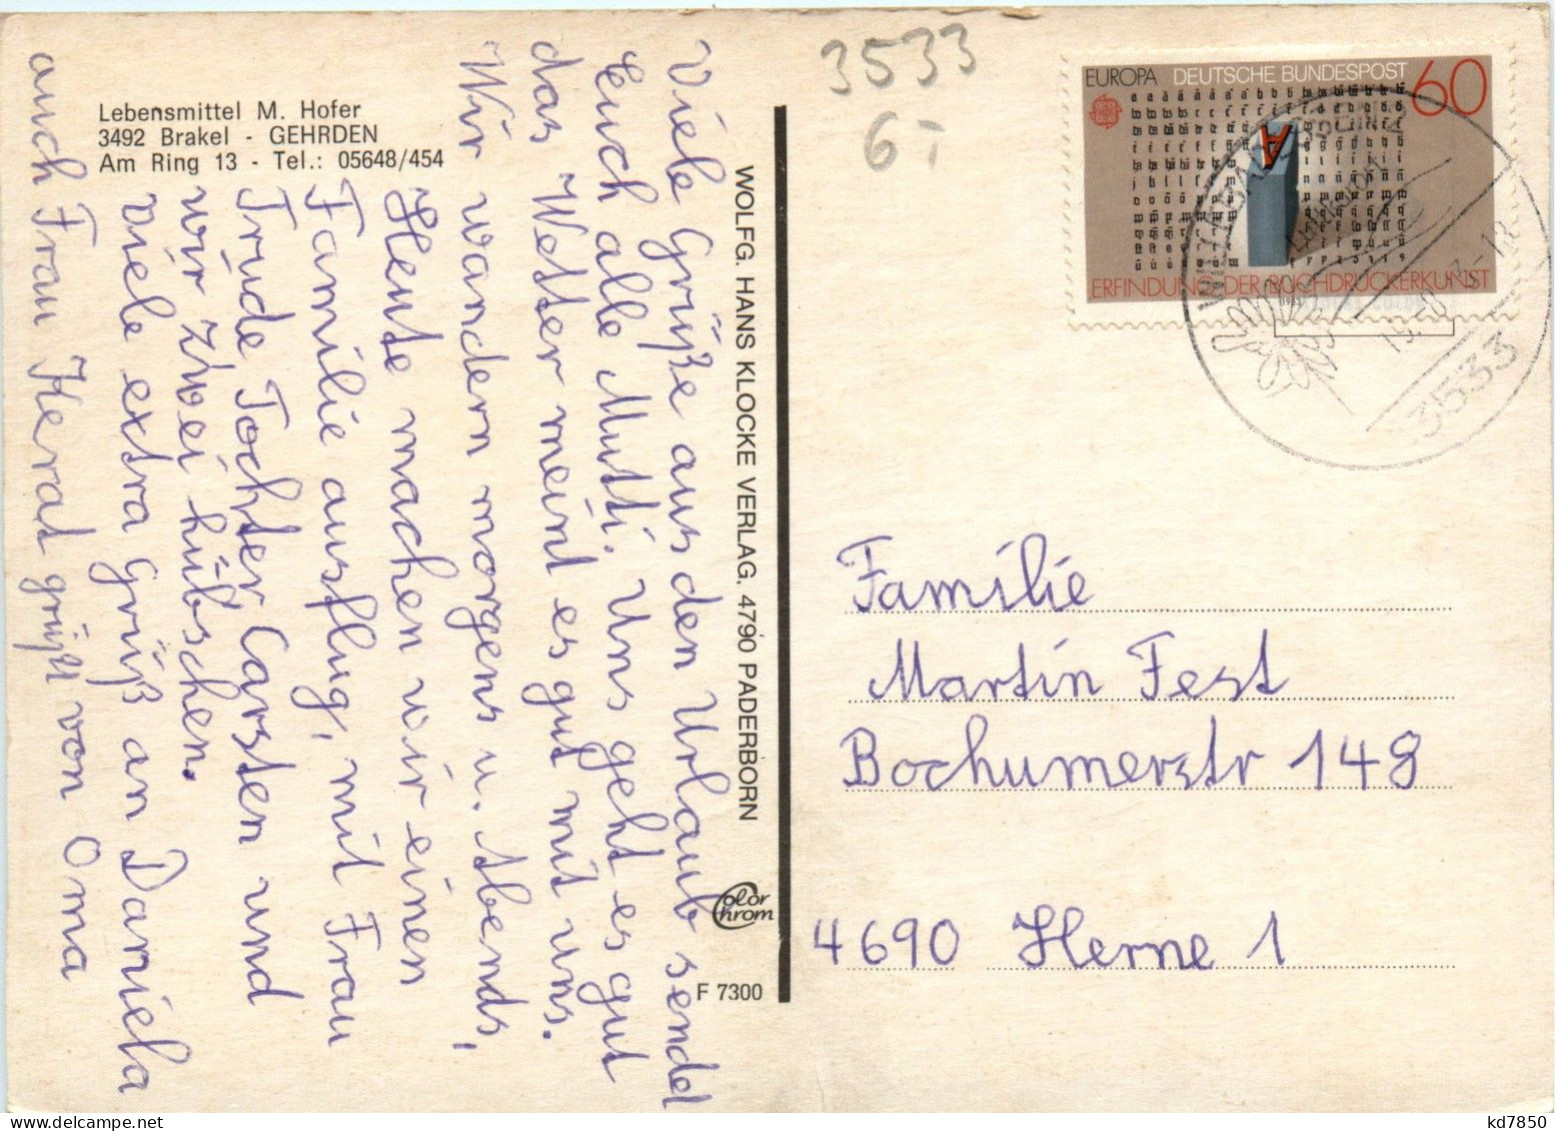 Lebensmittel M. Hofer
3492 Brakel - GEHRDEN
Am Ring 13 - Tel.: 05648/454
Viele Grüße aus den Urlaub sendet
Euch alle Mutti. Uns geht es gut
das Wetter meint es gut mit uns.
Wir wandern morgens u. Abends,
Heute machen wir einen
Familie ausflug, mit Frau
Trude Tochter, Carsten und
wir zwei hübschen.
Viele extra Grüß an Daniela
auch Frau Kerat grüßt von Oma
WOLFG. HANS KLOCKE VERLAG, 4790 PADERBORN
Color Chrom
F 7300
3533
6T
EUROPA DEUTSCHE BUNDESPOST 60
ERFINDUNG DER BUCHDRUCKERKUNST
3533
Familie
Martin Fest
Bochumerstr 148
4690 Herne 1
kd7850